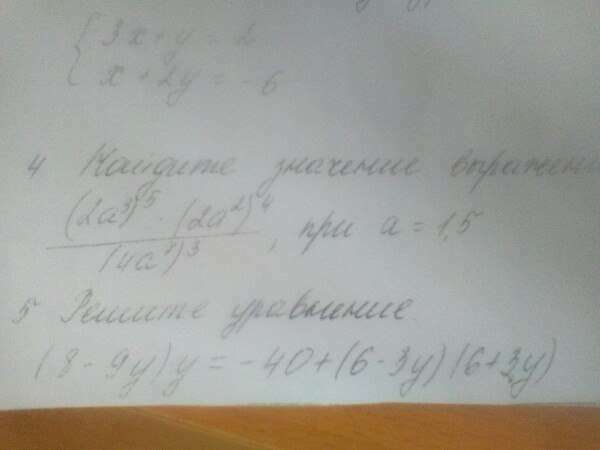 { 3x+y=2
x+2y=-6
4 Найдите значение выражени
(2a³)⁵ · (2a²)⁴
(4a⁷)³ , при a=1,5
5 Решите уравнение.
(8-9y)y=-40+(6-3y)(6+3y)